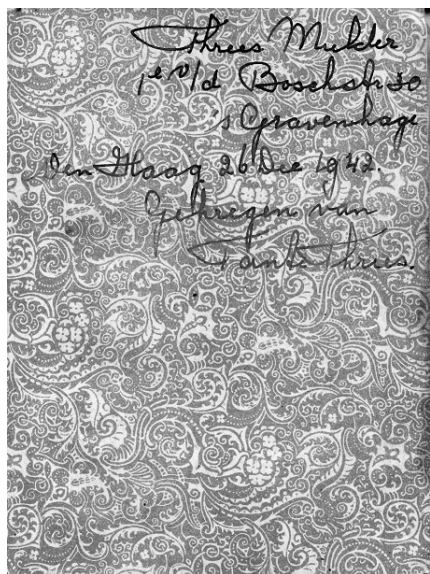 Threes Mulder
1e v/d Boschstr 30
's Gravenhage
Den Haag 26 Dec 1942.
Gekregen van
Tante Threes.